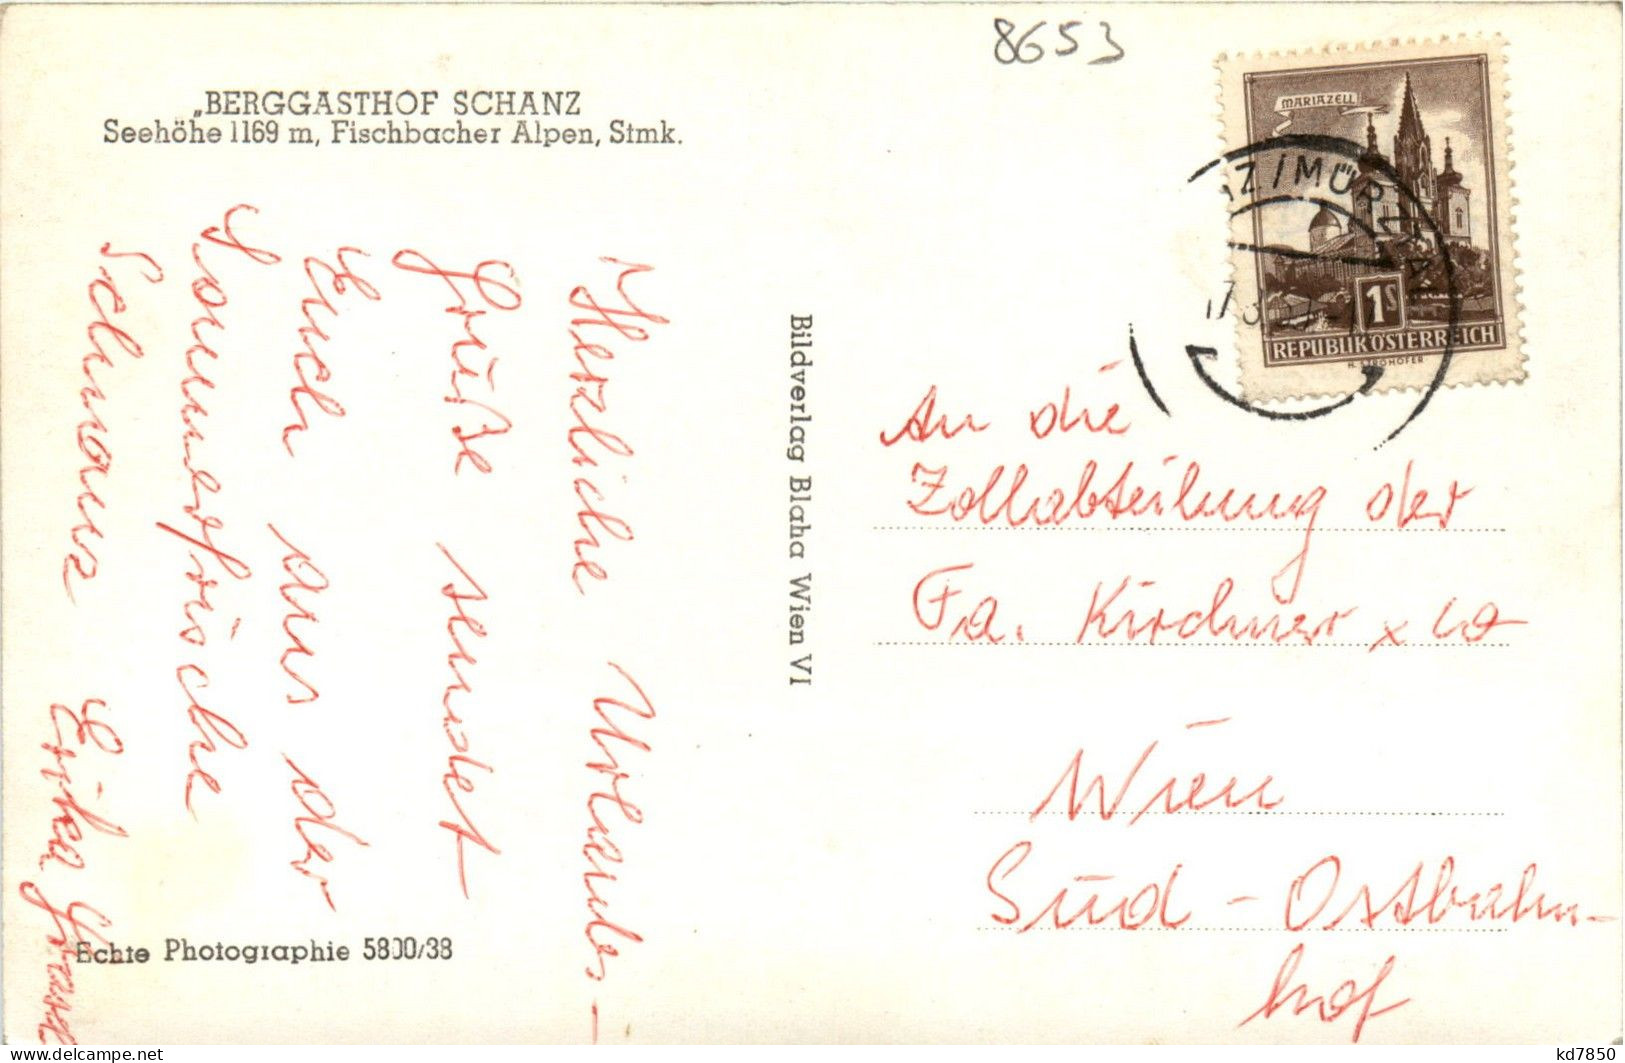 8653
„BERGGASTHOF SCHANZ
Seehöhe 1169 m, Fischbacher Alpen, Stmk.
Herzliche Urlaubs-
Grüße sendet
Euch aus der
Sommerfrische
Schnauz Erika
Echte Photographie 5800/38
Bildverlag Blaha Wien VI
MARIAZELL
1S
REPUBLIK ÖSTERREICH
Z/MÜRZTAL
An die
Zollabteilung der
Fa. Kirchner x Co
Wien
Süd-Ostbahn-
hof
kd7850